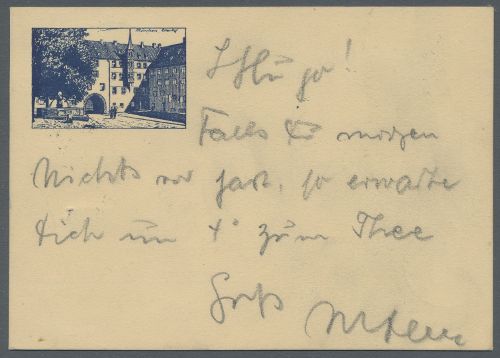 München Alterhof
ja!
Falls Du morgen
Nichts vor hast, so erwarte
Dich um 4° zum Thee
Gruß